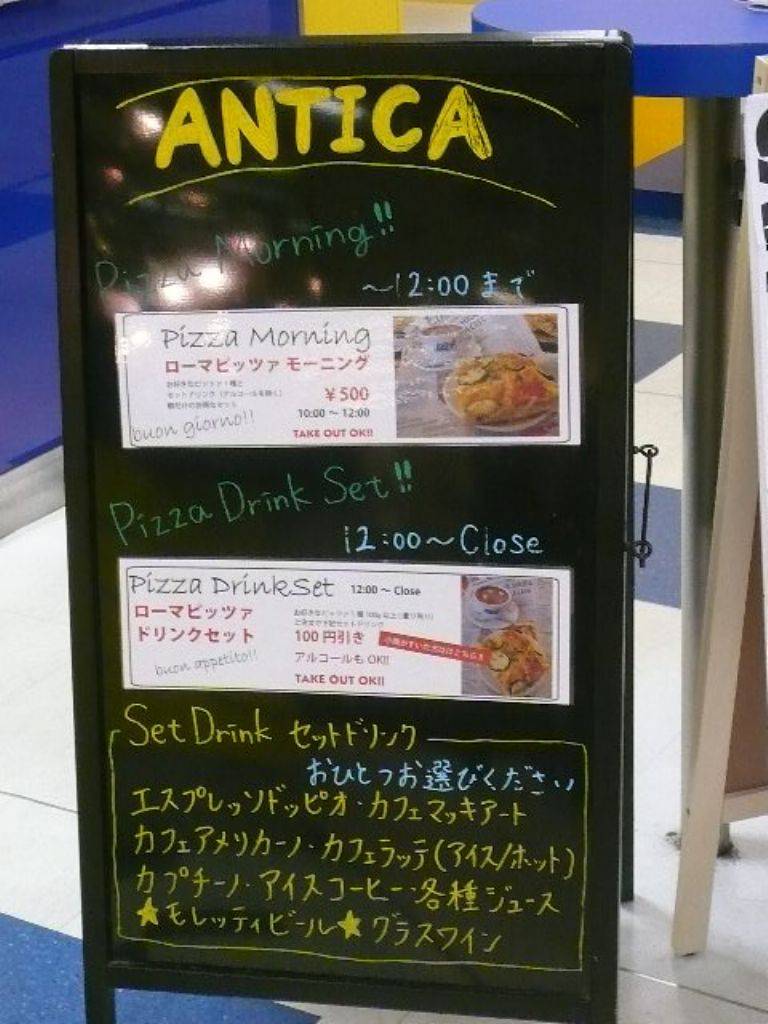 ANTICA
Pizza Morning!!
〜12:00まで
Pizza Morning
ローマピッツァ モーニング
¥500
10:00 〜 12:00
buon giorno!!
TAKE OUT OK!!
Pizza Drink Set!!
12:00〜Close
Pizza DrinkSet 12:00 〜 Close
ローマピッツァ
ドリンクセット
100円引き
アルコールも OK!!
buon appetito!!
TAKE OUT OK!!
Set Drink セットドリンク
おひとつお選びください
エスプレッソドッピオ・カフェマッキアート
カフェアメリカーノ・カフェラッテ(アイス/ホット)
カプチーノ・アイスコーヒー・各種ジュース
★モレッティビール★グラスワイン